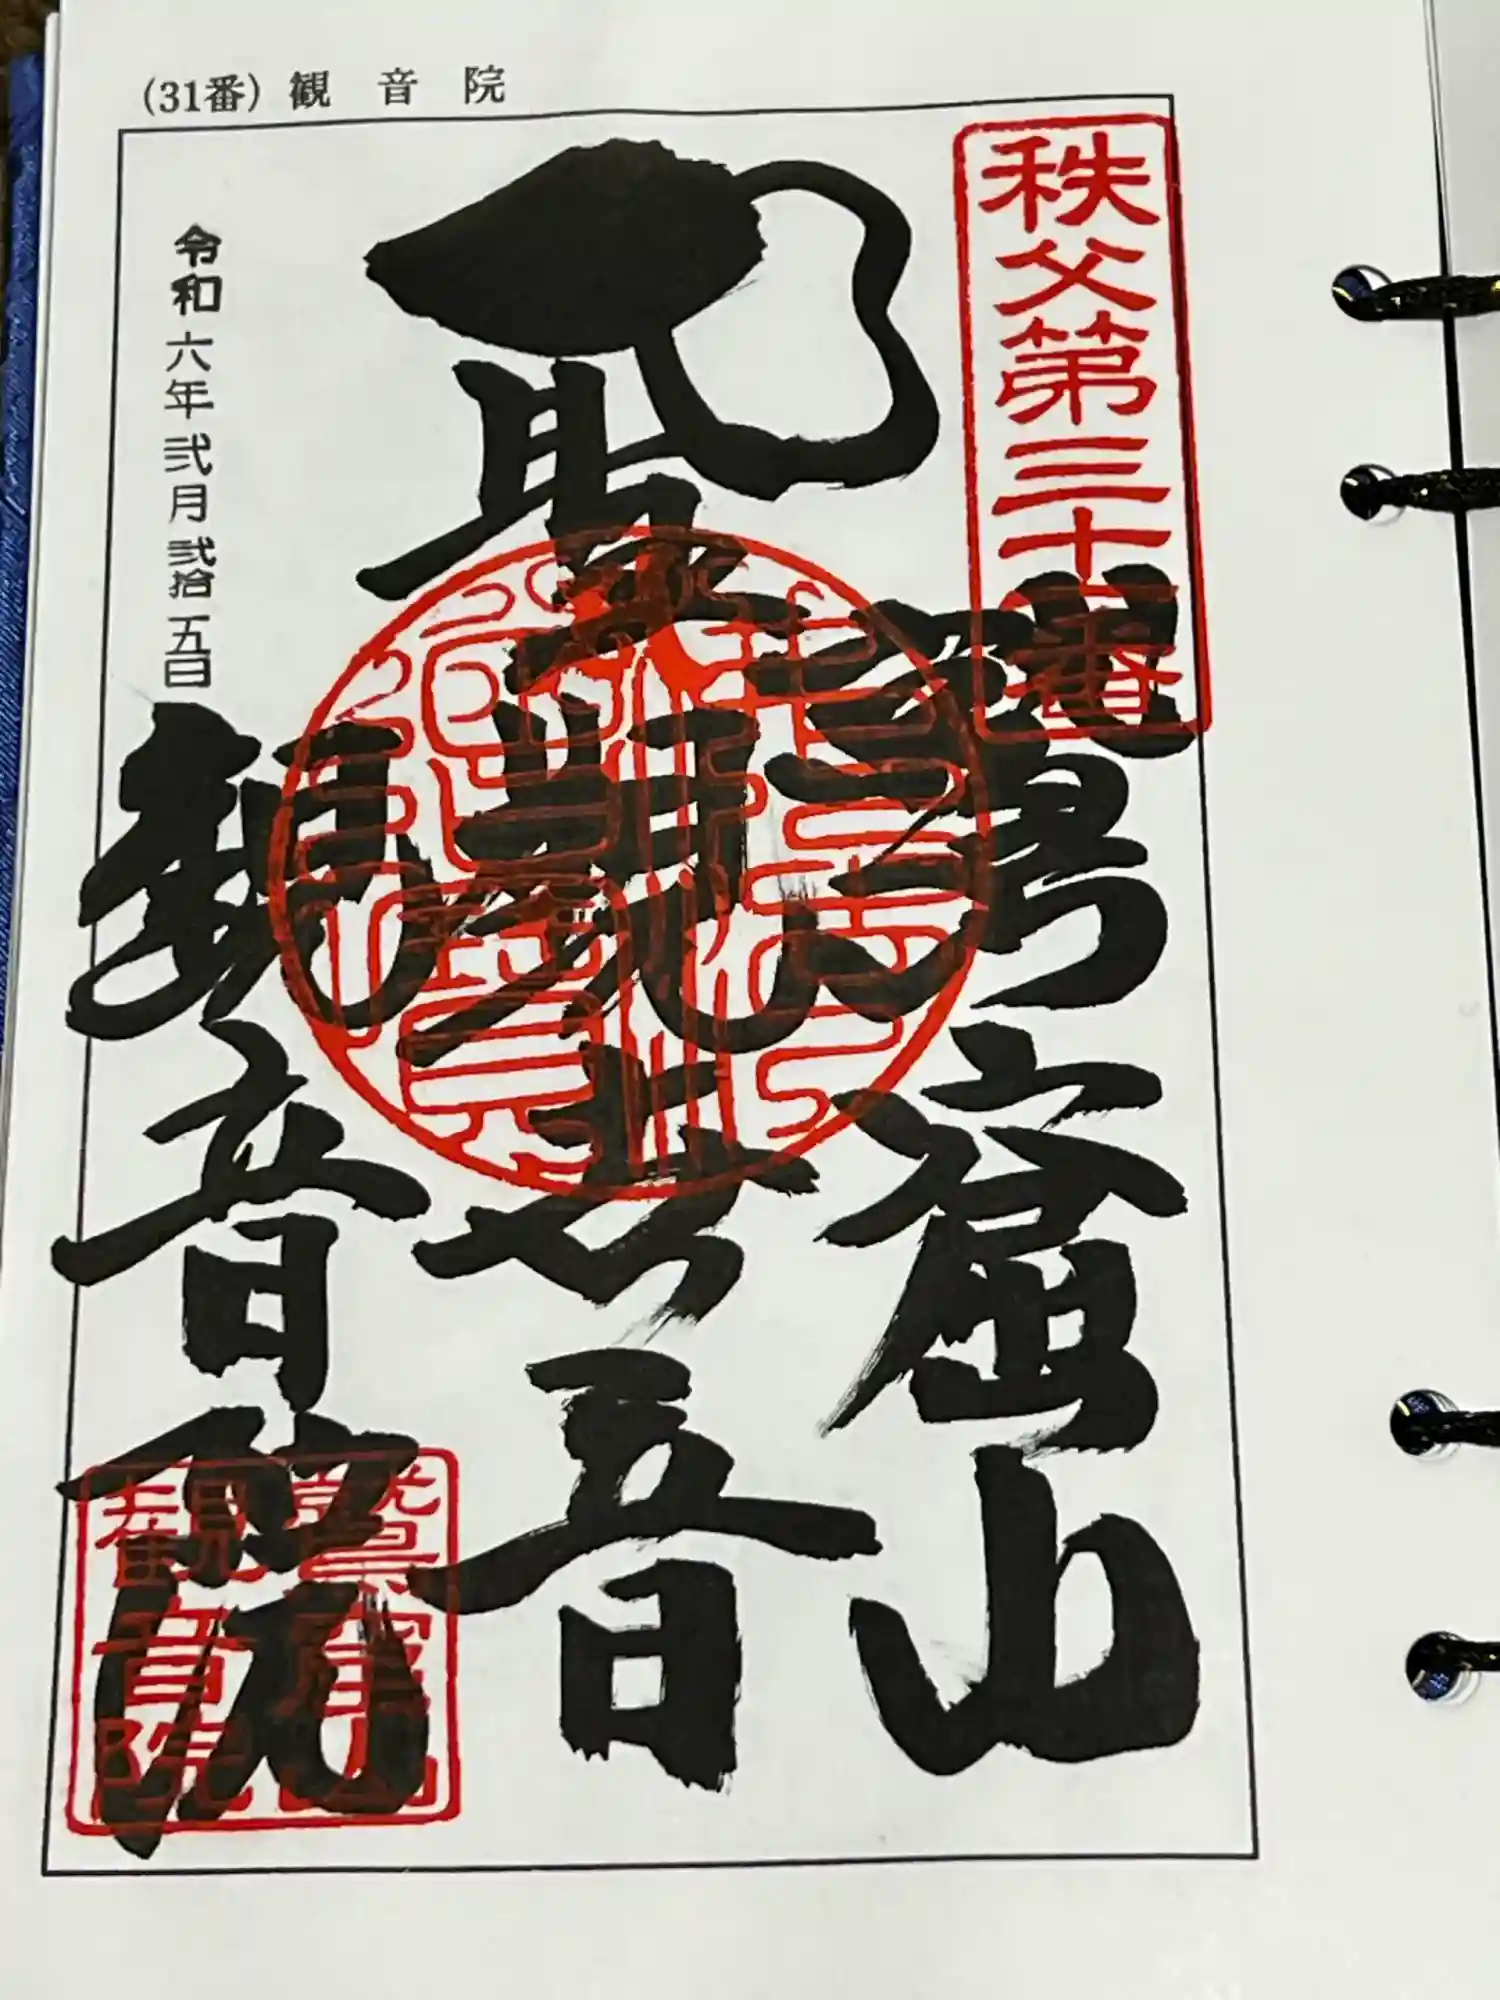 (31番) 観音院
秩父第三十一番
鷲窟山
聖観世音
令和六年弐月弐拾五日
観音院
鷲窟山
観音院